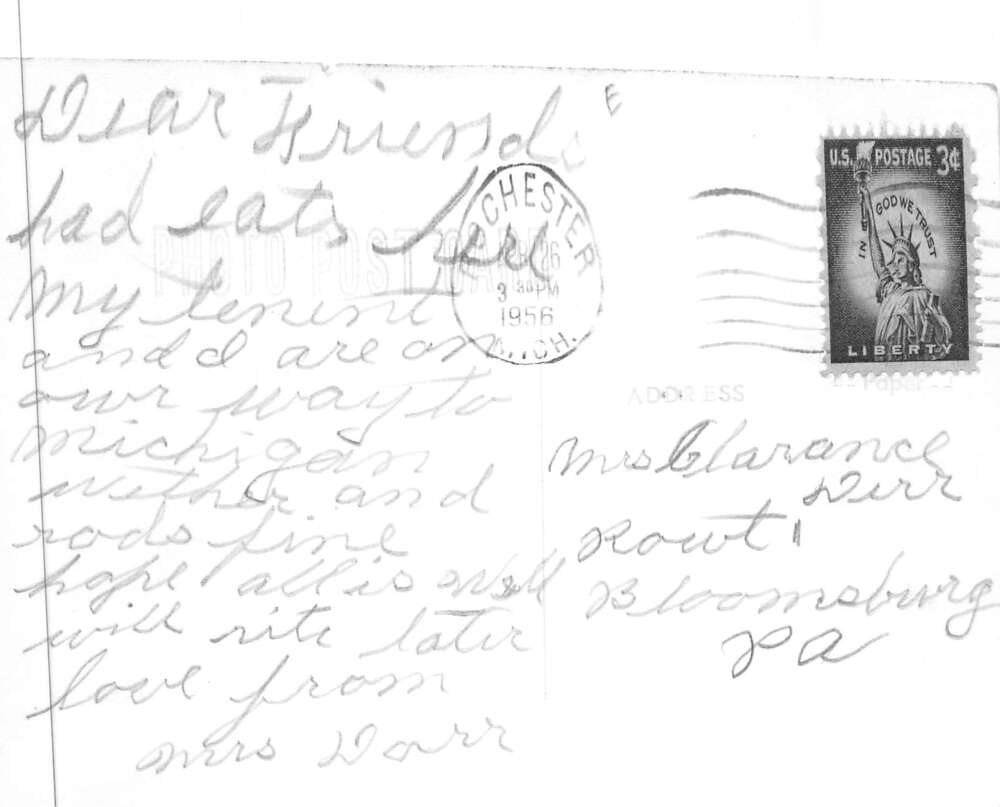 Dear Friends
had eats here
My tenent
and I are on
our way to
Michigan
wether and
rods fine
hope all is well
will rite later
love from
Mrs Dorr
E
PHOTO POST CARD
CHESTER
26
3 30 PM
1956
MICH.
U.S. POSTAGE 3¢
IN GOD WE TRUST
LIBERTY
ADDRESS
Paper
Mrs Clarance
Derr
Rowt 1
Bloomsburg
PA